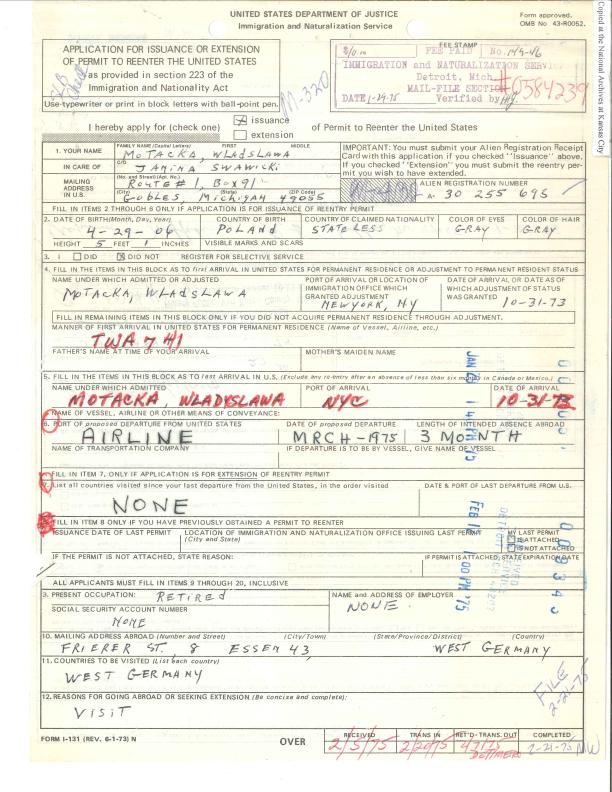 UNITED STATES DEPARTMENT OF JUSTICE
Immigration and Naturalization Service
Form approved.
OMB No. 43-R0052.
Copied at the National Archives at Kansas City
APPLICATION FOR ISSUANCE OR EXTENSION
OF PERMIT TO REENTER THE UNITED STATES
as provided in section 223 of the
Immigration and Nationality Act
Use typewriter or print in block letters with ball-point pen.
M-320
FEE STAMP
$10.00 FEE PAID No. 149-46
IMMIGRATION and NATURALIZATION SERVICE
Detroit, Mich.
MAIL-FILE SECTION
DATE 1-29-75 Verified by
#0584239
I hereby apply for (check one) X issuance of Permit to Reenter the United States
extension
1. YOUR NAME FAMILY NAME (Capital Letters) FIRST MIDDLE
MOTACKA, WLADSLAWA
IN CARE OF C/O JANINA SWAWICKI
MAILING ADDRESS IN U.S. (No. and Street) (Apt. No.)
ROUTE # 1, BOX 91
(City) (State) (ZIP Code)
GOBLES MICHIGAN 49055
IMPORTANT: You must submit your Alien Registration Receipt Card with this application if you checked "Issuance" above. If you checked "Extension" you must submit the reentry permit you wish to have extended.
ALIEN REGISTRATION NUMBER
A- 30 255 695
FILL IN ITEMS 2 THROUGH 6 ONLY IF APPLICATION IS FOR ISSUANCE OF REENTRY PERMIT
2. DATE OF BIRTH (Month, Day, Year) COUNTRY OF BIRTH COUNTRY OF CLAIMED NATIONALITY COLOR OF EYES COLOR OF HAIR
4-29-06 POLAND STATELESS GRAY GRAY
HEIGHT 5 FEET 1 INCHES VISIBLE MARKS AND SCARS
3. I DID X DID NOT REGISTER FOR SELECTIVE SERVICE
4. FILL IN THE ITEMS IN THIS BLOCK AS TO first ARRIVAL IN UNITED STATES FOR PERMANENT RESIDENCE OR ADJUSTMENT TO PERMANENT RESIDENT STATUS
NAME UNDER WHICH ADMITTED OR ADJUSTED
MOTACKA, WLADSLAWA
PORT OF ARRIVAL OR LOCATION OF IMMIGRATION OFFICE WHICH GRANTED ADJUSTMENT
NEW YORK, NY
DATE OF ARRIVAL OR DATE AS OF WHICH ADJUSTMENT OF STATUS WAS GRANTED
10-31-73
FILL IN REMAINING ITEMS IN THIS BLOCK ONLY IF YOU DID NOT ACQUIRE PERMANENT RESIDENCE THROUGH ADJUSTMENT.
MANNER OF FIRST ARRIVAL IN UNITED STATES FOR PERMANENT RESIDENCE (Name of Vessel, Airline, etc.)
TWA 741
FATHER'S NAME AT TIME OF YOUR ARRIVAL MOTHER'S MAIDEN NAME
5. FILL IN THE ITEMS IN THIS BLOCK AS TO last ARRIVAL IN U.S. (Exclude any re-entry after an absence of less than six months in Canada or Mexico.)
NAME UNDER WHICH ADMITTED PORT OF ARRIVAL DATE OF ARRIVAL
MOTACKA, WLADYSLAWA NYC 10-31-73
NAME OF VESSEL, AIRLINE OR OTHER MEANS OF CONVEYANCE:
6. PORT OF proposed DEPARTURE FROM UNITED STATES DATE OF proposed DEPARTURE LENGTH OF INTENDED ABSENCE ABROAD
AIRLINE MRCH-1975 3 MONTH
NAME OF TRANSPORTATION COMPANY IF DEPARTURE IS TO BE BY VESSEL, GIVE NAME OF VESSEL
FILL IN ITEM 7, ONLY IF APPLICATION IS FOR EXTENSION OF REENTRY PERMIT
7. List all countries visited since your last departure from the United States, in the order visited DATE & PORT OF LAST DEPARTURE FROM U.S.
NONE
FILL IN ITEM 8 ONLY IF YOU HAVE PREVIOUSLY OBTAINED A PERMIT TO REENTER
ISSUANCE DATE OF LAST PERMIT LOCATION OF IMMIGRATION AND NATURALIZATION OFFICE ISSUING LAST PERMIT (City and State) MY LAST PERMIT
IS ATTACHED
IS NOT ATTACHED
IF THE PERMIT IS NOT ATTACHED, STATE REASON: IF PERMIT IS ATTACHED, STATE EXPIRATION DATE
FEB 1:00 PM '75
ALL APPLICANTS MUST FILL IN ITEMS 9 THROUGH 20, INCLUSIVE
9. PRESENT OCCUPATION: RETIRED
NAME and ADDRESS OF EMPLOYER
NONE
SOCIAL SECURITY ACCOUNT NUMBER
NONE
10. MAILING ADDRESS ABROAD (Number and Street) (City/Town) (State/Province/District) (Country)
FRIERER ST, 8 ESSEN 43, WEST GERMANY
11. COUNTRIES TO BE VISITED (List each country)
WEST GERMANY
12. REASONS FOR GOING ABROAD OR SEEKING EXTENSION (Be concise and complete):
VISIT
FILE
2-21-75
FORM I-131 (REV. 6-1-73) N
OVER
RECEIVED TRANS IN RET'D-TRANS. OUT COMPLETED
2/5/75 2/20/75 2-21-75 MW